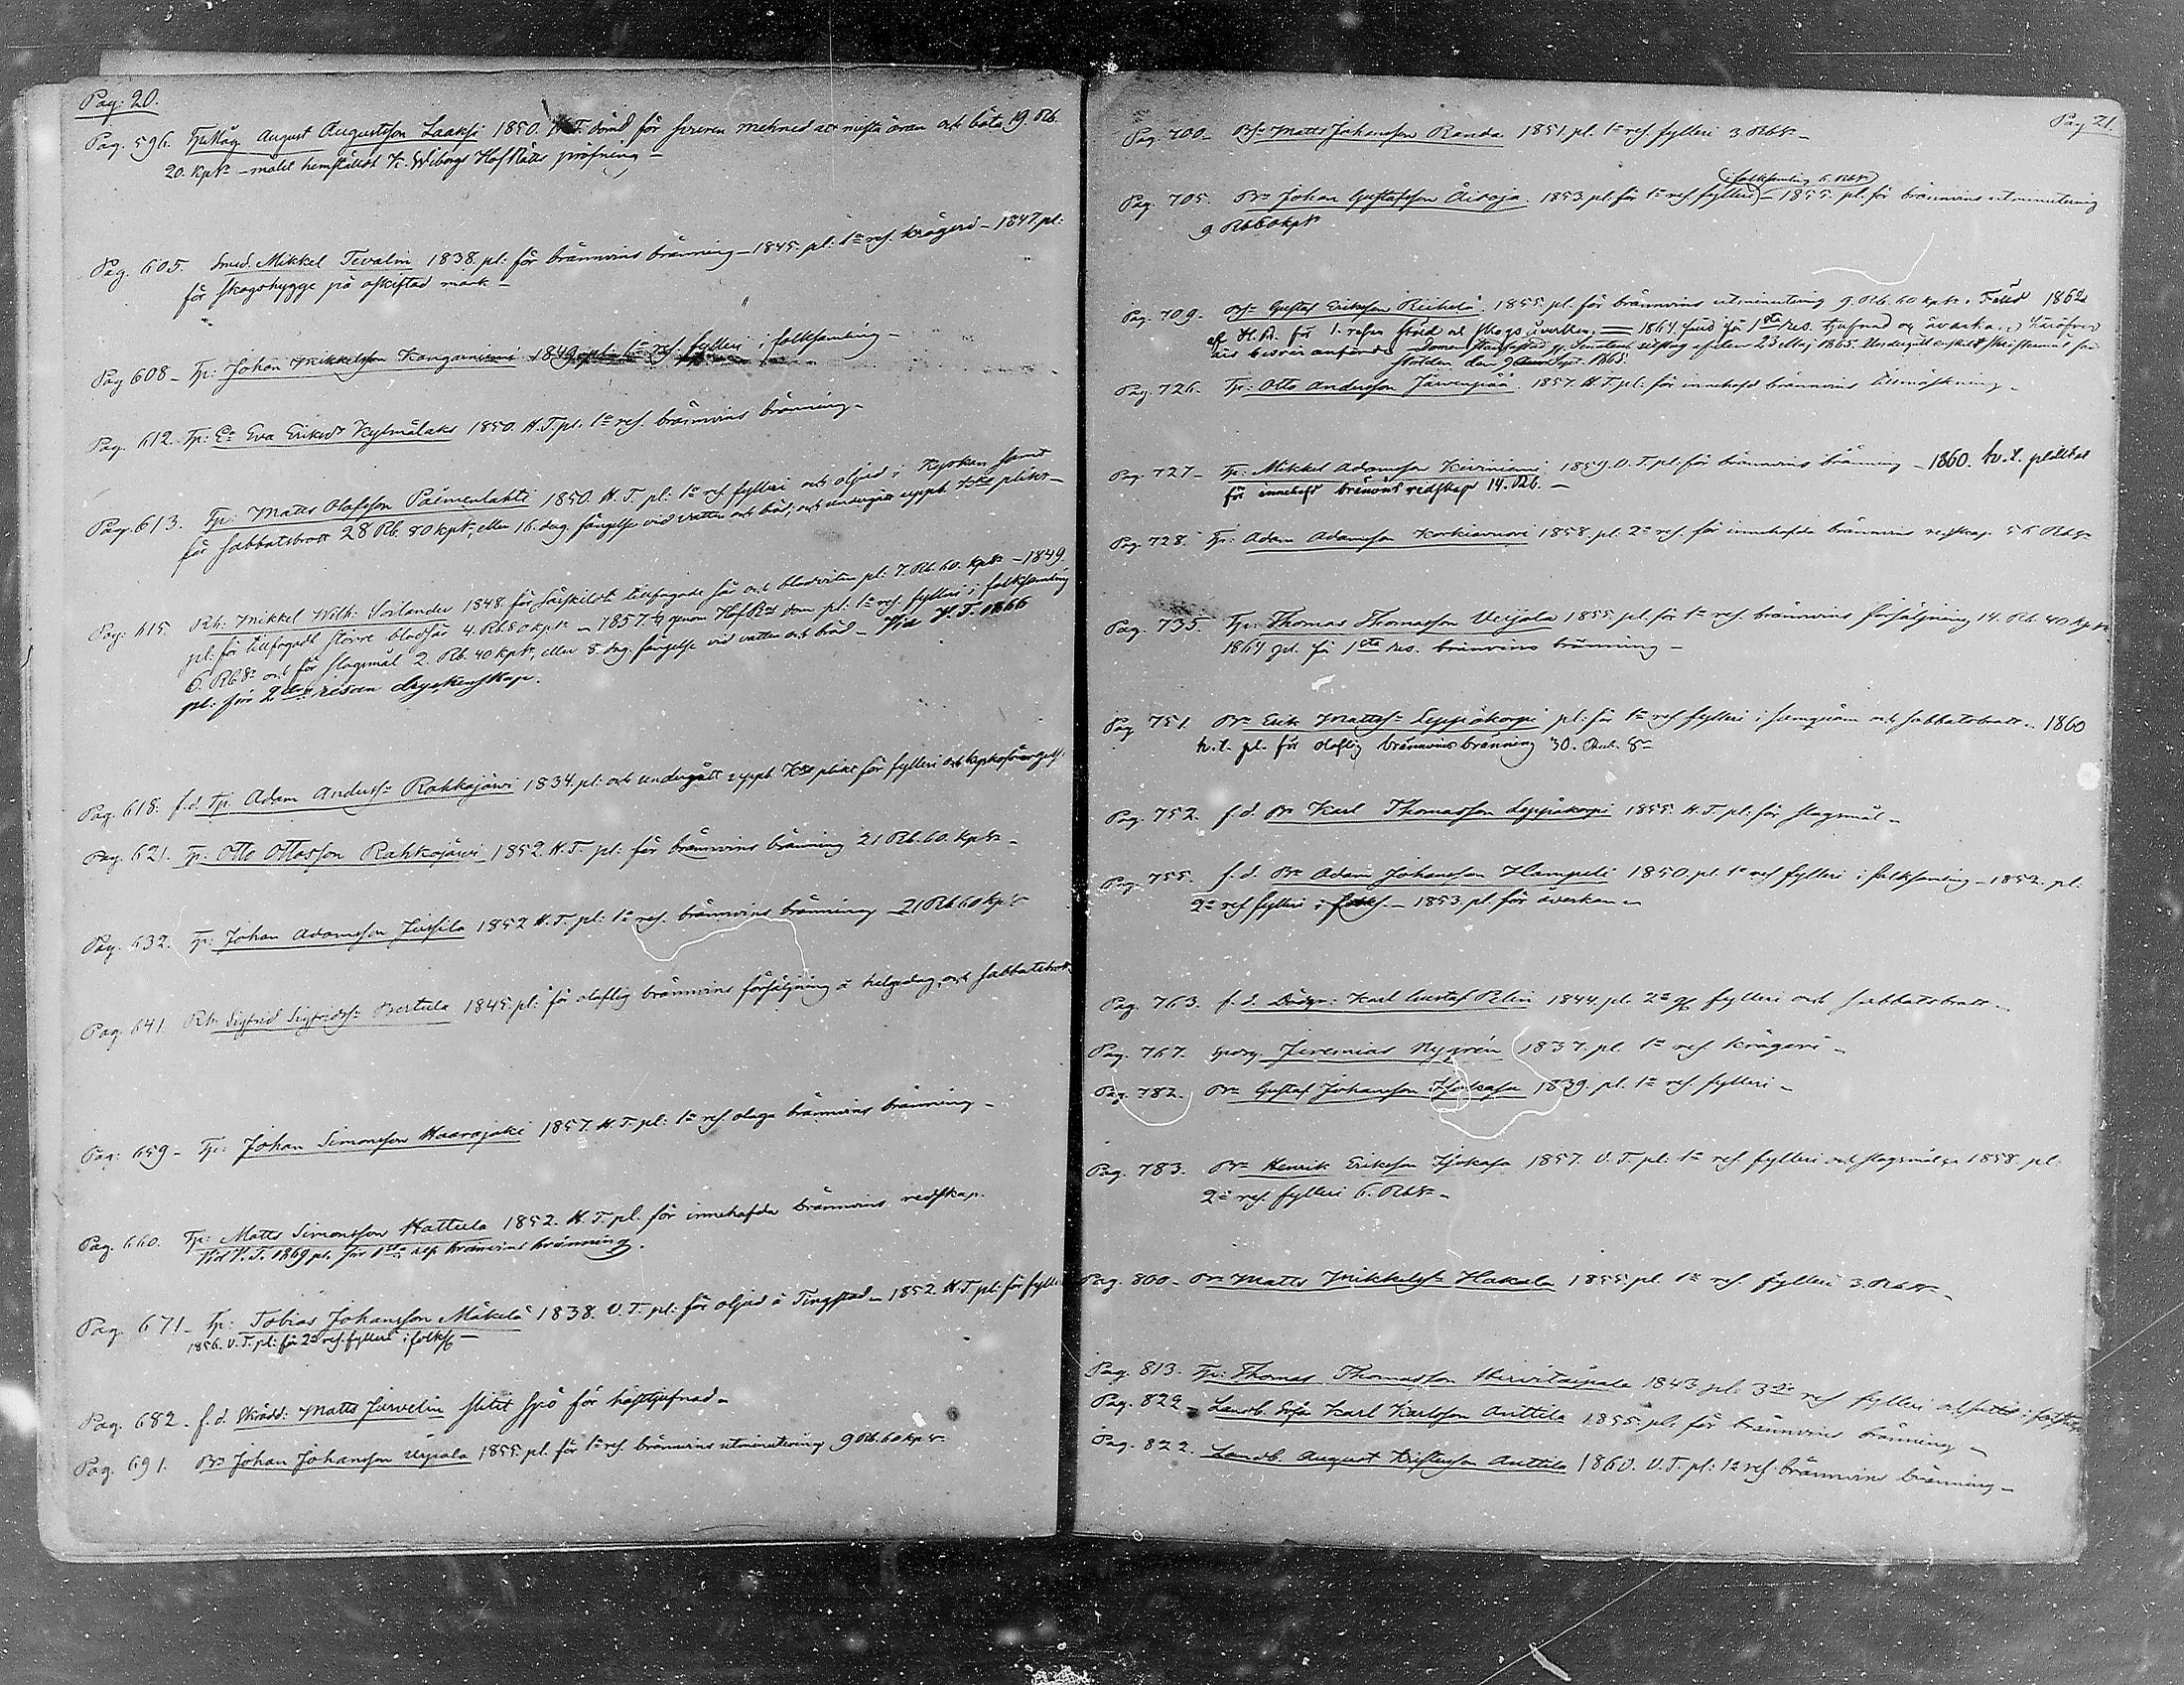 Pag: 20.
Pag. 596. August Augustsson Laaksi 1850. H.T. dömd för svuren mehned att mista äran och böta 19. Rb.
20. Kpkr - målet hemställdt K. Wiborgs HofRätts pröfning -
Pag. 605. Smed. Mikkel Tevalin 1838. pl: för brännvins bränning - 1845. pl: 1a res. krögeri - 1847. pl:
för skogshygge på oskiftad mark -
Pag 608 - Tp: Johan Mikkelsson Kangasniemi 1849. pl: 1a res. fylleri i folksamling -
Pag. 612. Tp: Ea Eva Eriksdr Kylmälaks 1850. H.T. pl. 1a res. brännvins bränning -
Pag. 613. Tp: Matts Olofsson Palmenlahti 1850. H.T. pl: 1a res fylleri och oljud i Kyrkan samt
för sabbatsbrott 28 Rb. 80 kpkr, eller 16. dag. fängelse vid vatten och bröd, och undergått uppb. Kko plikt -
Pag: 615. Rh: Mikkel Wilh: Sorlander 1848. för särskildt tillfogade sår och blodviten pl: 7. Rb. 60. kpkr - 1849.
pl. för tillfogadt större blodsår 4. Rb. 80 kpkr - 1857. genom HofRts dom pl: 1a res fylleri i folksamling
6. Rbsr och för slagsmål 2. Rb. 40 kpkr, eller 8. dag. fängelse vid vatten och bröd - Vid H.T. 1866
pl: för 2dra resan dryckenskap.
Pag. 618. f.d. Tp. Adam Anderss. Rahkajärvi 1834. pl: och undergått uppb. Kko plikt för fylleri och
Pag. 621. Tp. Otto Ottosson Rahkajärvi 1852. H.T. pl: för brännvins bränning 21 Rb. 60. kpkr -
Pag. 632. Tp: Johan Adamsson Jussila 1852 H.T. pl: 1a res. brännvins bränning 21 Rb 60 kpkr
Pag. 641. Rh. Sigfrid Sigfridss. Bertula 1845. pl: för olaflig brännvins försäljning å helgedag, och sabbatsbrott.
Pag: 659 - Tp: Johan Simonsson Haarajoki 1857. H.T. pl: 1a res olaga brännvins bränning -
Pag. 660. Tp: Matts Simonsson Hattula 1852. H.T. pl. för innehafda brännvins redskap.
Vid V.T. 1869 pl. för 1sta resp brännvins bränning.
Pag. 671 - Tp: Tobias Johansson Mäkelä 1838. V.T. pl: för oljud å Tingstad - 1852. H.T. pl: för fylleri
1856. V.T. pl: för 2a res. fylleri i folks. -
Pag. 682 - f.d. Skrädd: Matts Jurvelin slitit spö för hästtjufnad -
Pag. 691. Bn Johan Johansson Uspala 1855. pl. för 1a res. brännvins utminutering 9 Rb. 60 kpkr.
Pag 21.
Pag. 700 - Matts Johansson Randa 1851. pl. 1a res fylleri 3 Rbsr -
i folksamling 6. Rbsr
Pag. 705. Bn Johan Gustafsson Äikoja 1853. pl. för 1a res fylleri - 1855. pl. för brännvins utminutering
9 Rb 60 kpkr
Pag. 709. Gustaf Eriksson 1855. pl. för brännvins utminutering 9. Rb. 60 kpkr. Fälld 1862
af H.R. för 1. resan stöld och skogs åverkan. = 1864. för 1sta res. tjufnad och åverkan
besvär anförde domen 23 Maj 1865. Undergått enskilt skriftermål för
stölden den 9 Sept. 1865
Pag. 726. Tp: Otto Andersson Järvenpää 1857. H.T. pl: för innehafd brännvins tillmäskning -
Pag. 727 - Tp: Mikkel Adamsson Kiviniemi 1859. V.T. pl. för brännvins bränning - 1860. h.t. pliktat
för innehaft bränvins redskap 14. Rb. -
Pag. 728. Tp: Adam Adamsson Korkiavuori 1858. pl. 2a res. för innehafda brännvins redskap 56 Rbsr
Pag. 735. Tp: Thomas Thomasson Veijola 1855. pl. för 1a res. brännvins försäljning 14. Rb. 40 kpkr
1864 pl. för 1sta res. bränvins bränning -
Pag 751. Bn Erik Mattss. Leppäkorpi pl: för 1a res fylleri i och sabbatsbrott. - 1860
h.t. pl. för olaflig brännvinsbränning 30. Rub. Sr
Pag. 752. f.d. Bn Karl Thomasson Leppäkorpi 1855. H.T. pl: för slagsmål -
Pag. 755. f.d. Bn Adam Johansson Hampeli 1850. pl. 1a res fylleri i folksamling - 1852. pl:
2a res fylleri i folks. - 1853. pl för åverkan -
Pag. 763. f.d. Karl Gustaf Pelin 1844. pl. 2a g. fylleri och sabbatsbrott -
Pag. 767. Jeremias Nygrén 1837. pl. 1a res krögeri -
Pag. 782. Bn Gustaf Johansson 1839. pl. 1a res. fylleri -
Pag. 783. Bn Henrik Eriksson 1857. V.T. pl: 1a res. fylleri och slagsmål 1858. pl:
2a res. fylleri 6. Rbsr -
Pag. 800 - Bn Matts Mikkelss. Hakala 1855. pl. 1a res. fylleri 3. Rbsr -
Pag. 813. Tp: Thomas Thomasson Hirvitaipale 1843. pl. 3dje res fylleri
Pag. 822 - Landb. Karl Karlsson Anttila 1855. pl: för brännvins bränning -
Pag. 822. Landb. August Anttila 1860. V.T. pl: 1a res. brännvins bränning -